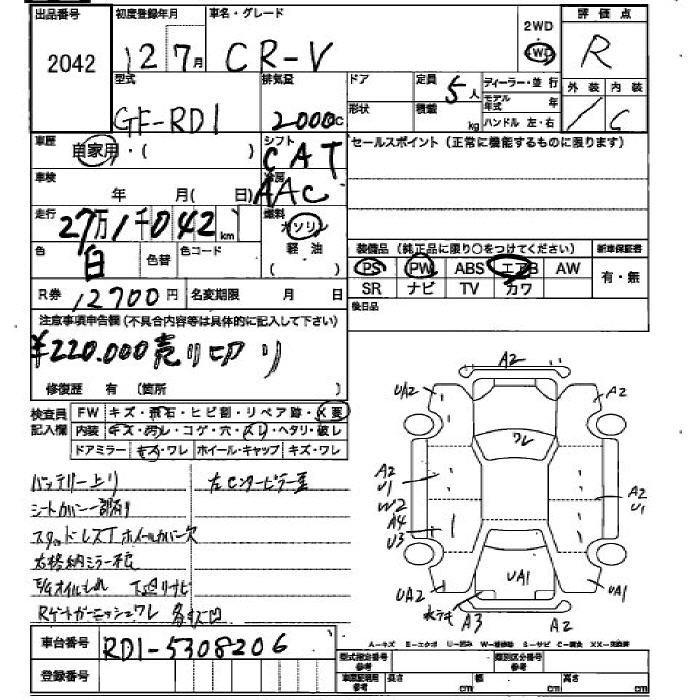 出品番号 初度登録年月 車名・グレード 評価点
2042 12 7月 CR-V 2WD 4WD R
型式 排気量 ドア 定員 5人 ディーラー・並行 外装 内装
GF-RD1 2000cc 形状 積載 kg モデル年式 年 / C
ハンドル 左・右
車歴 自家用・( ) シフト CAT セールスポイント(正常に機能するものに限ります)
車検 年 月( 日) 冷房 AAC
走行 27万1千042km 燃料 ガソリン
軽油
( )
色 白 色替 色コード
装備品(純正品に限り○をつけてください) 新車保証書
PS PW ABS エアB AW 有・無
SR ナビ TV カワ
R券 12700円 名変期限 月 日 後日品
注意事項申告欄(不具合内容等は具体的に記入して下さい)
¥220.000売り切り
修復歴 有(箇所 )
検査員記入欄 FW キズ・飛石・ヒビ割・リペア跡・X要
内装 キズ・汚レ・コゲ・穴・スレ・ヘタリ・破レ
ドアミラー キズ・ワレ ホイール・キャップ キズ・ワレ
バッテリー上り 左センターピラー歪
シートカバー一部有り
スタッドレスT ホイールカバー欠
右格納ミラー不良
E/gオイルもれ 下廻りサビ
Rゲートガーニッシュワレ 各キズ凹
A2
UA2 A2
ワレ
A2
U1
W2
A4
U3
A2
U1
UA1
UA2 UA1
A3 A2
車台番号 RD1-5308206
登録番号
A-キズ E-エクボ U-凹み W-補修跡 S-サビ C-腐食 XX-交換済
型式指定番号 参考 類別区分番号 参考
車庫証明用 参考 長さ cm 幅 cm 高さ cm